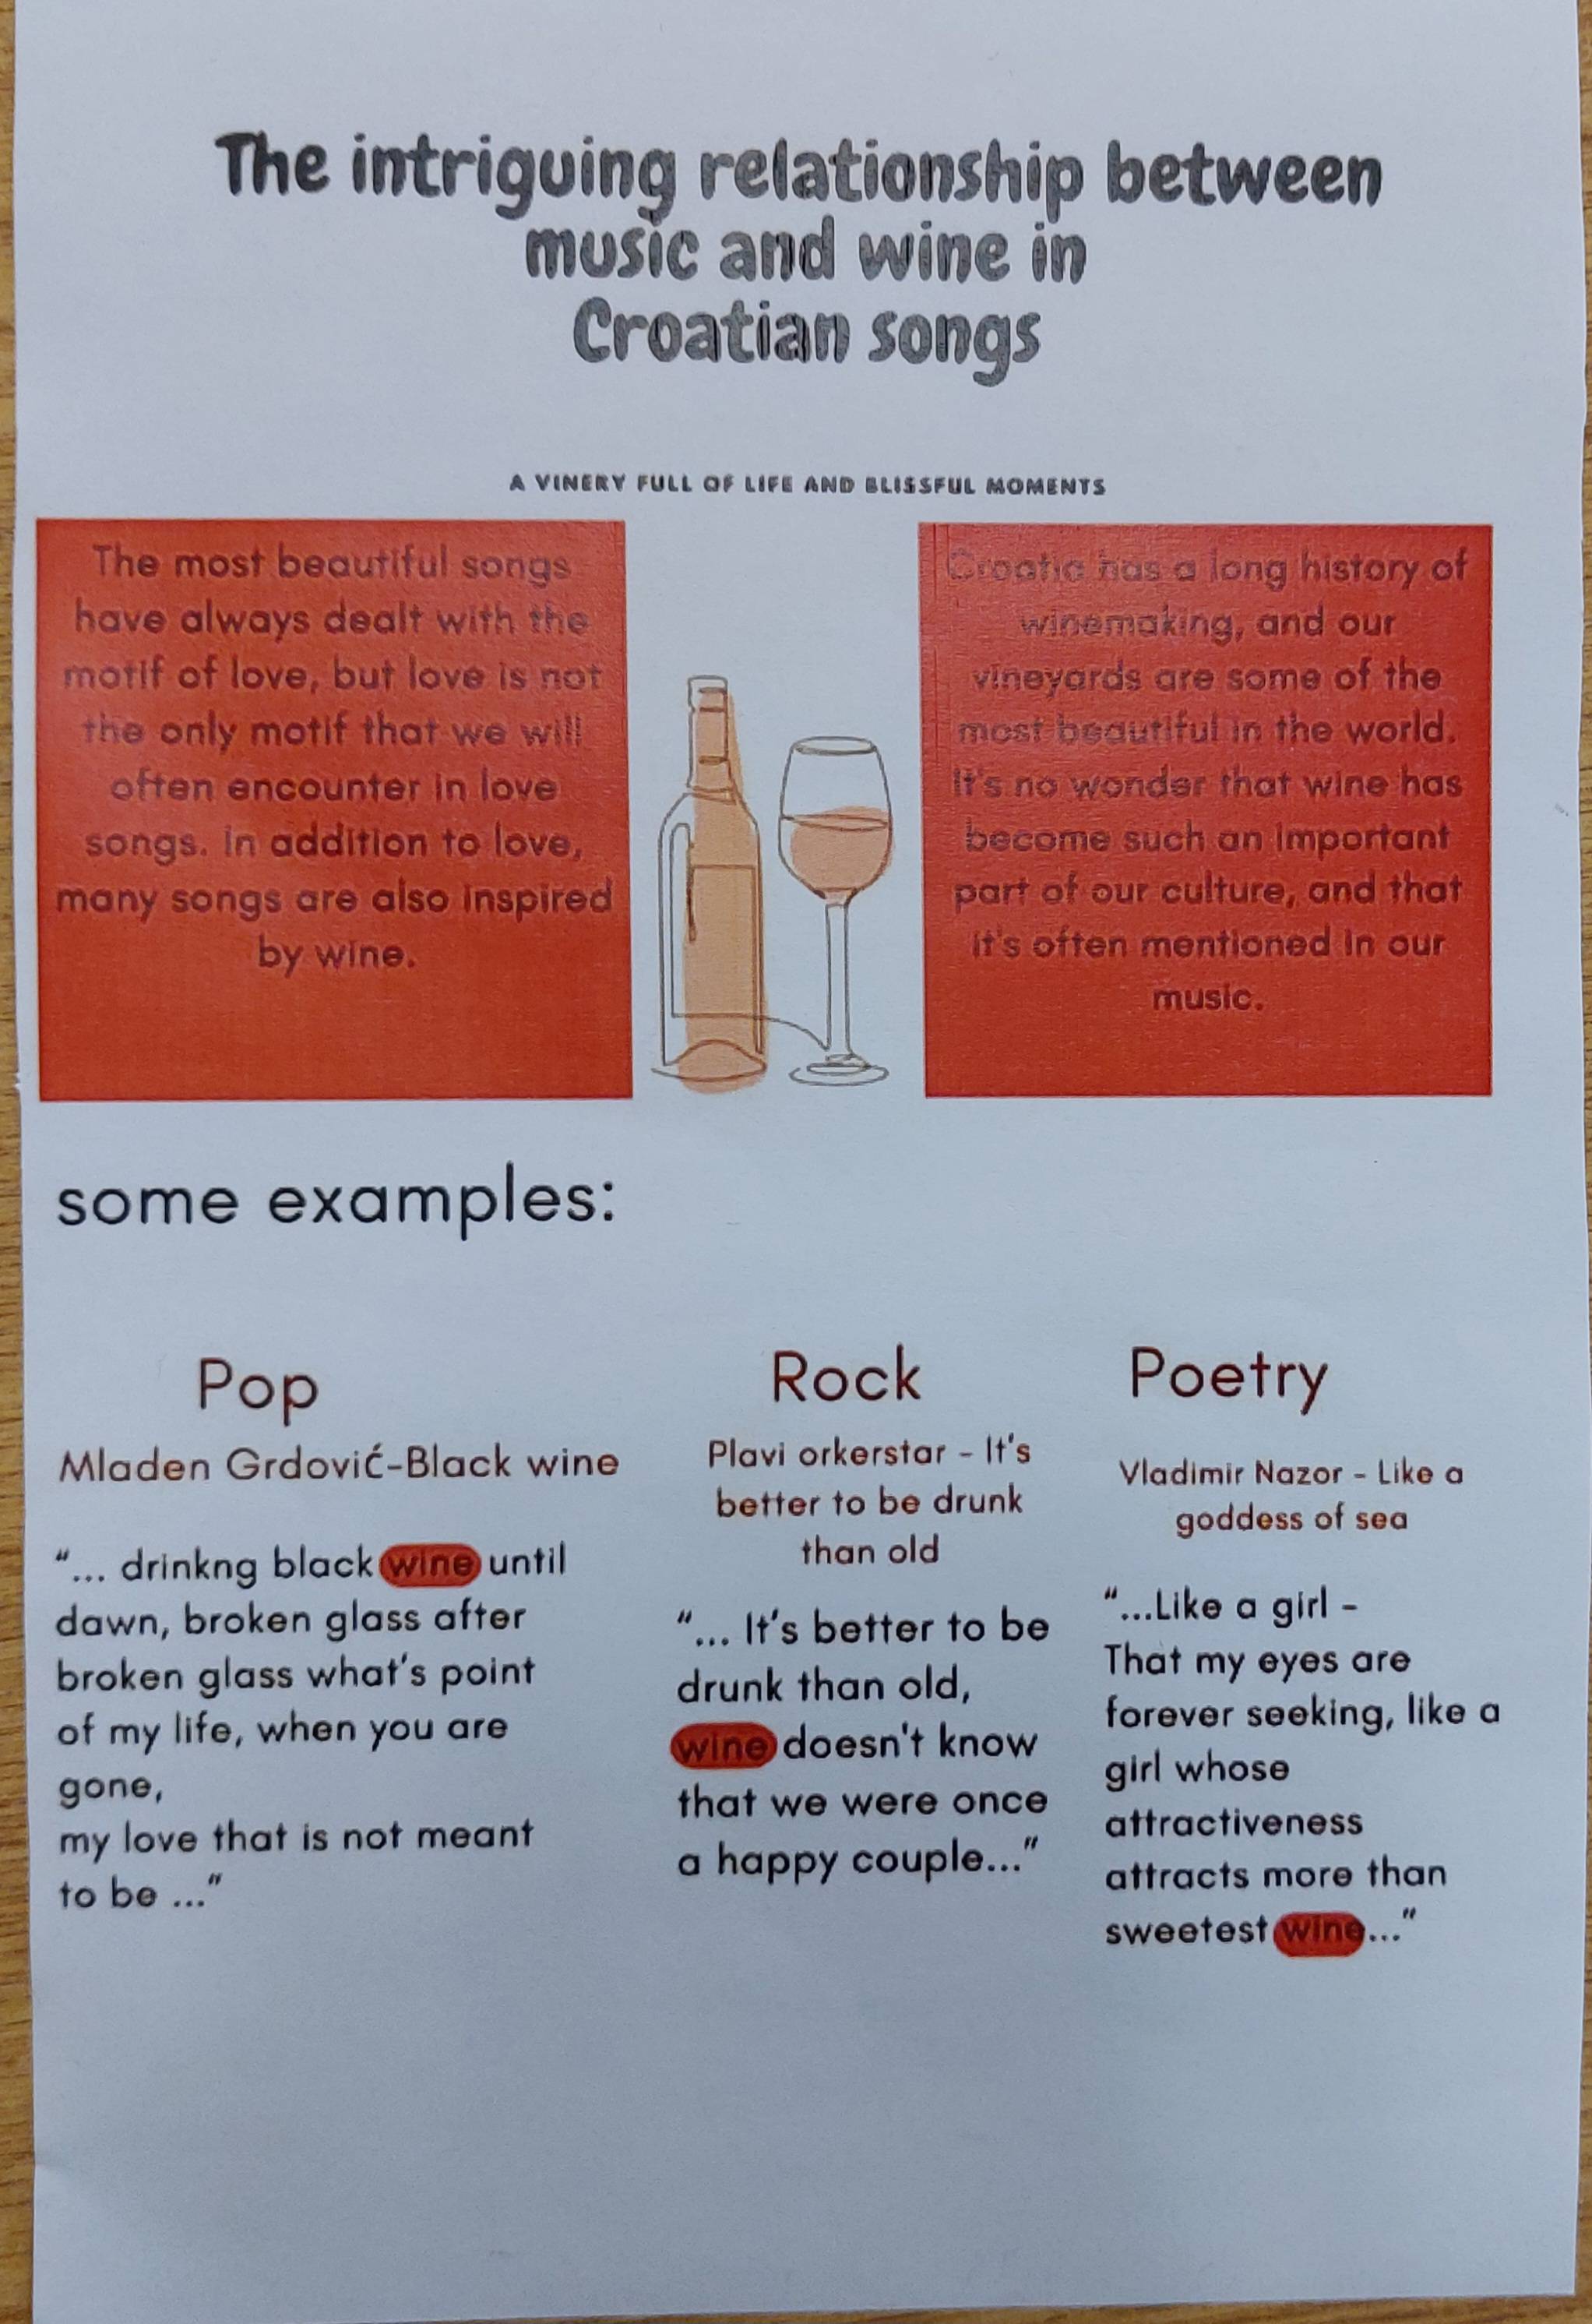 The intriguing relationship between
music and wine in
Croatian songs
A VINERY FULL OF LIFE AND BLISSFUL MOMENTS
The most beautiful songs
have always dealt with the
motif of love, but love is not
the only motif that we will
often encounter in love
songs. In addition to love,
many songs are also inspired
by wine.
Croatia has a long history of
winemaking, and our
vineyards are some of the
most beautiful in the world.
It's no wonder that wine has
become such an important
part of our culture, and that
it's often mentioned in our
music.
some examples:
Pop
Mladen Grdović-Black wine
"... drinkng black wine until
dawn, broken glass after
broken glass what's point
of my life, when you are
gone,
my love that is not meant
to be ..."
Rock
Plavi orkerstar - It's
better to be drunk
than old
"... It's better to be
drunk than old,
wine doesn't know
that we were once
a happy couple..."
Poetry
Vladimir Nazor - Like a
goddess of sea
"...Like a girl -
That my eyes are
forever seeking, like a
girl whose
attractiveness
attracts more than
sweetest wine..."